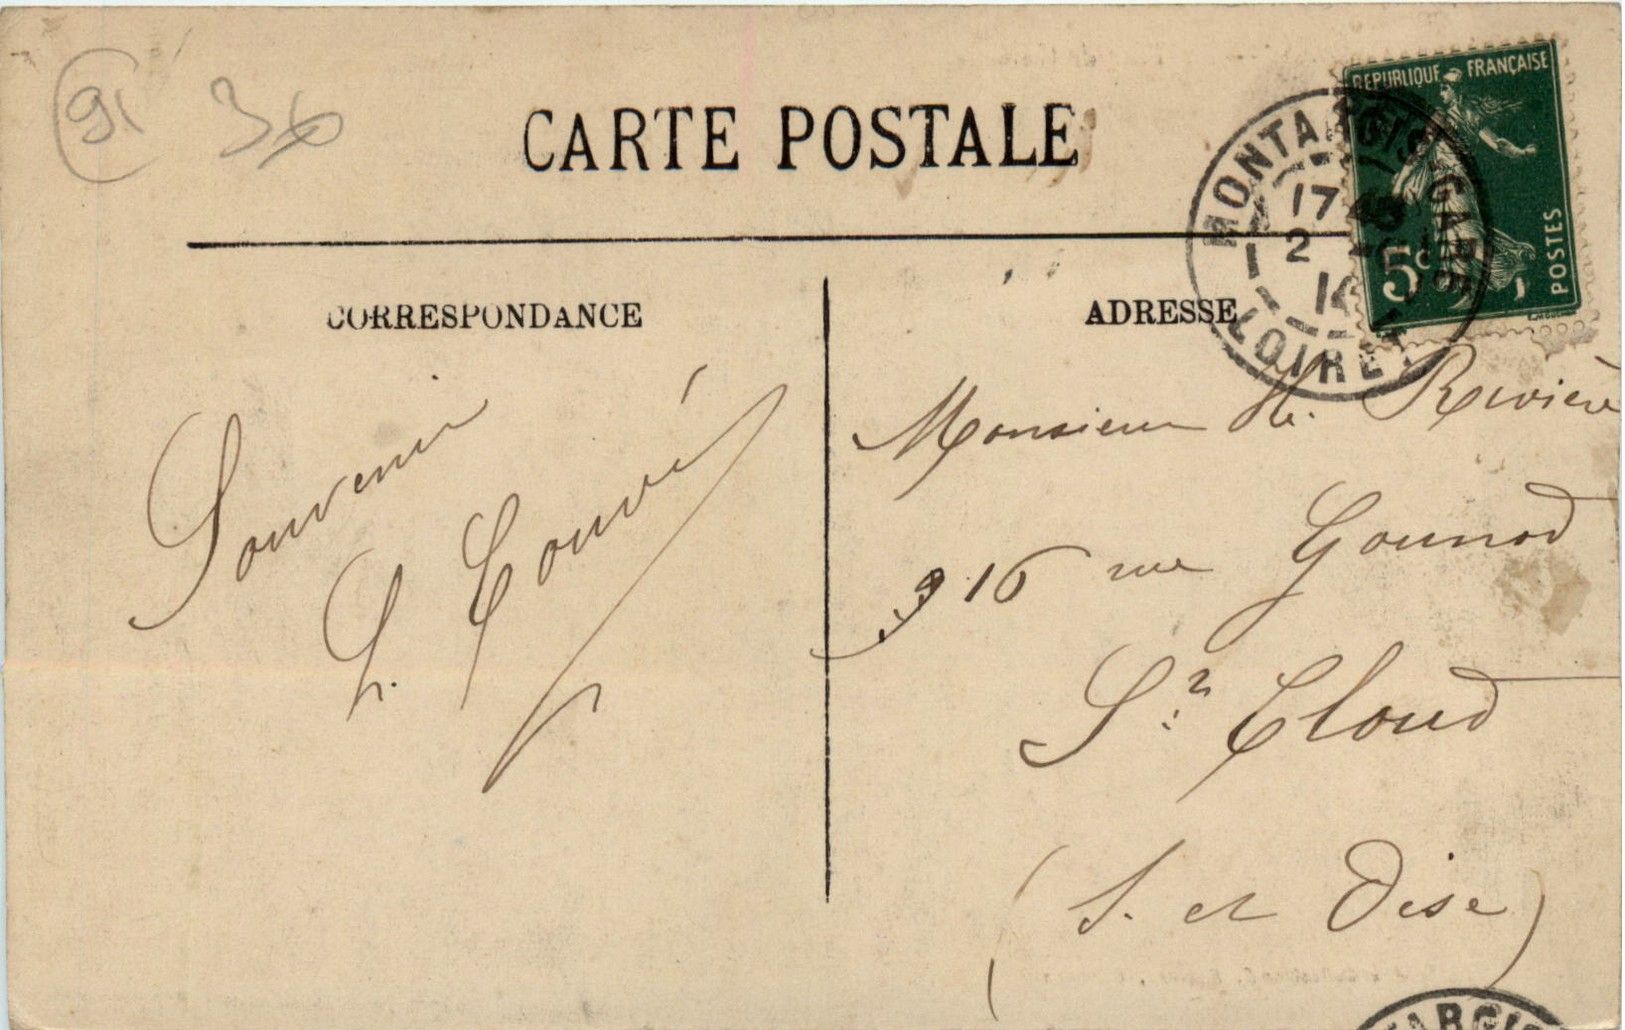 91 36
CARTE POSTALE
RÉPUBLIQUE FRANÇAISE
5c POSTES
MONTARGIS GARE
17 45
2
LOIRET
CORRESPONDANCE
ADRESSE
Souvenir
L.
Monsieur H. Rivière
16 rue Gounod
St Cloud
(S. et Oise)